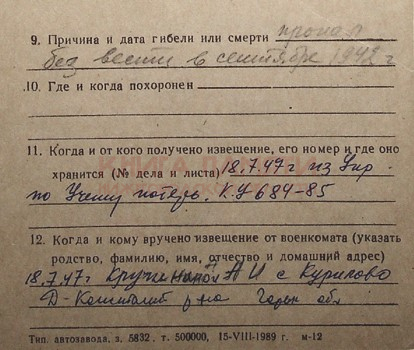 9. Причина и дата гибели или смерти пропал
без вести в сентябре 1942 г
10. Где и когда похоронен
11. Когда и от кого получено извещение, его номер и где оно
хранится (№ дела и листа) 18.7.47г из Упр.
по учету потерь. К.У 684-85
12. Когда и кому вручено извещение от военкомата (указать
родство, фамилию, имя, отчество и домашний адрес)
18.7.47г А И с Курилово
Д-Константин р-на Горьк обл
Тип. автозавода, з. 5832, т. 500000, 15-VIII-1989 г. м-12